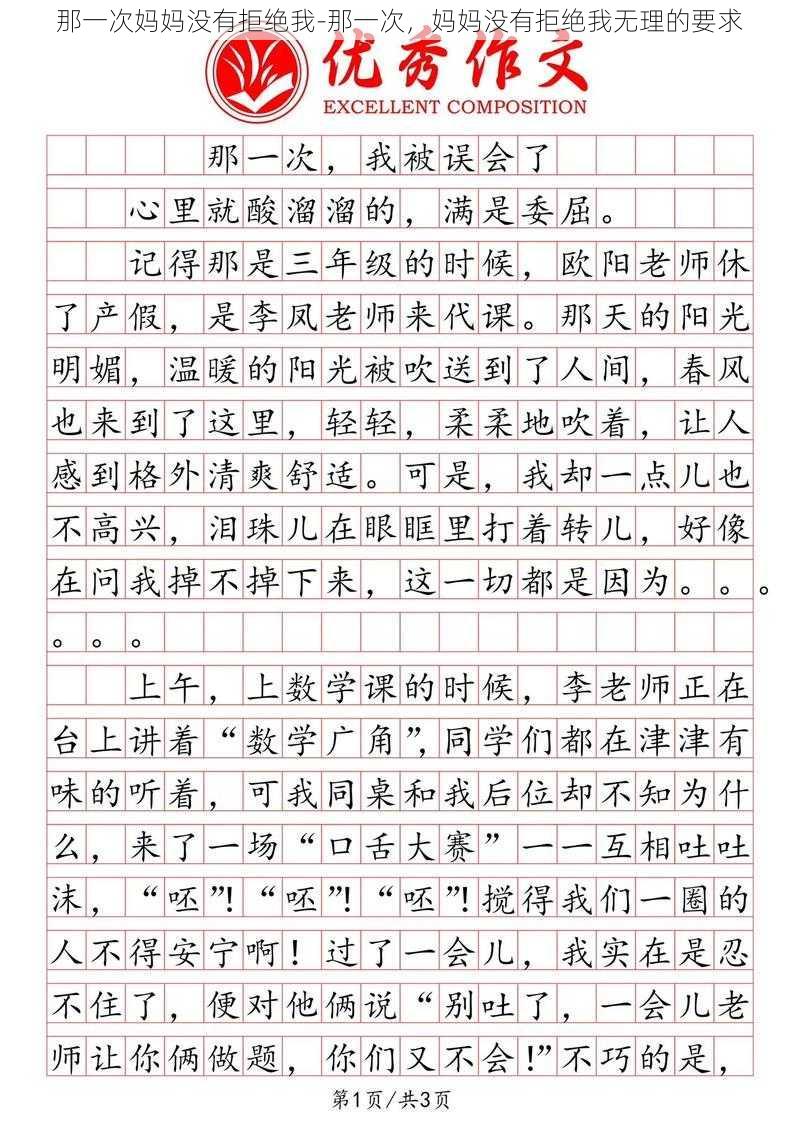 那一次妈妈没有拒绝我-那一次，妈妈没有拒绝我无理的要求
优秀作文
EXCELLENT COMPOSITION
那一次，我被误会了
心里就酸溜溜的，满是委屈。
记得那是三年级的时候，欧阳老师休
了产假，是李凤老师来代课。那天的阳光
明媚，温暖的阳光被吹送到了人间，春风
也来到了这里，轻轻，柔柔地吹着，让人
感到格外清爽舒适。可是，我却一点儿也
不高兴，泪珠儿在眼眶里打着转儿，好像
在问我掉不掉下来，这一切都是因为。。。
。。。
上午，上数学课的时候，李老师正在
台上讲着“数学广角”，同学们都在津津有
味的听着，可我同桌和我后位却不知为什
么，来了一场“口舌大赛”一一互相吐吐
沫，“呸”！“呸”！“呸”！搅得我们一圈的
人不得安宁啊！过了一会儿，我实在是忍
不住了，便对他俩说“别吐了，一会儿老
师让你俩做题，你们又不会！”不巧的是，
第1页/共3页